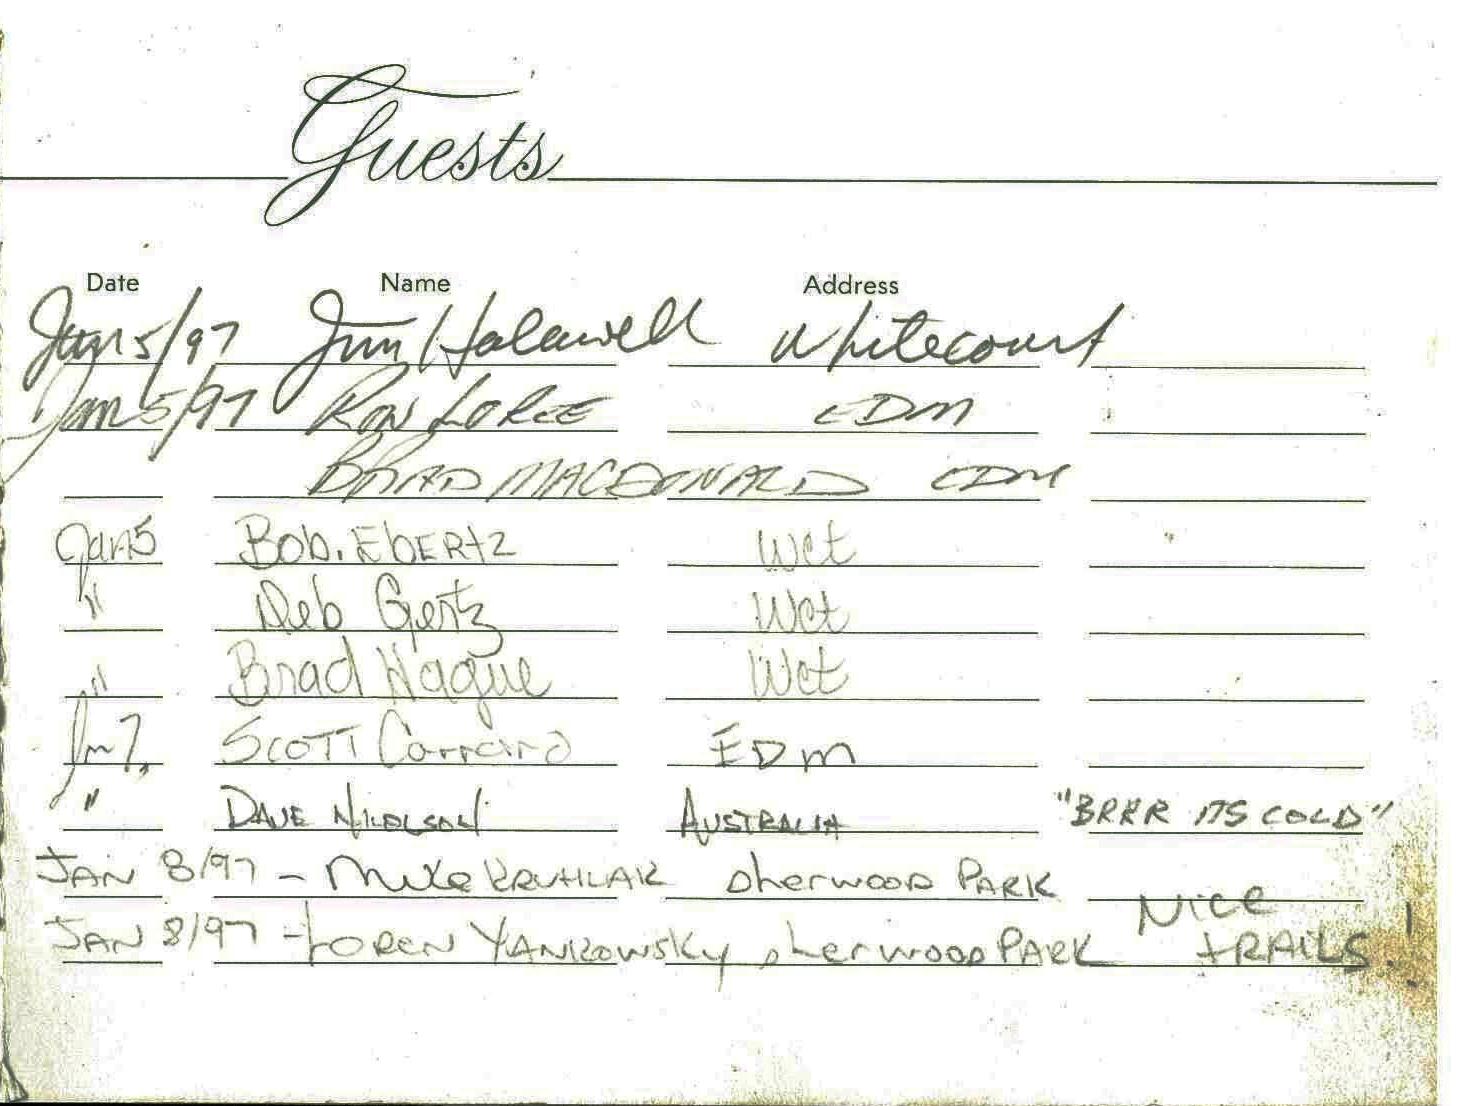 Guests
Date Name Address
Jan 5/97 Jim Halawell Whitecourt
Jan 5/97 RON LOREE EDM
BRAD MACDONALD EDM
Jan 5 Bob. EbERtz Wct
" Deb Gertz Wct
" Brad Hague Wct
Jan 7, SCOTT EDM
" DAVE NICOLSON AUSTRALIA "BRRR ITS COLD"
JAN 8/97 - Mike KRUHLAK Sherwood PARK
JAN 8/97 - LOREN YANKOWSKY Sherwood PARK Nice tRAILS!